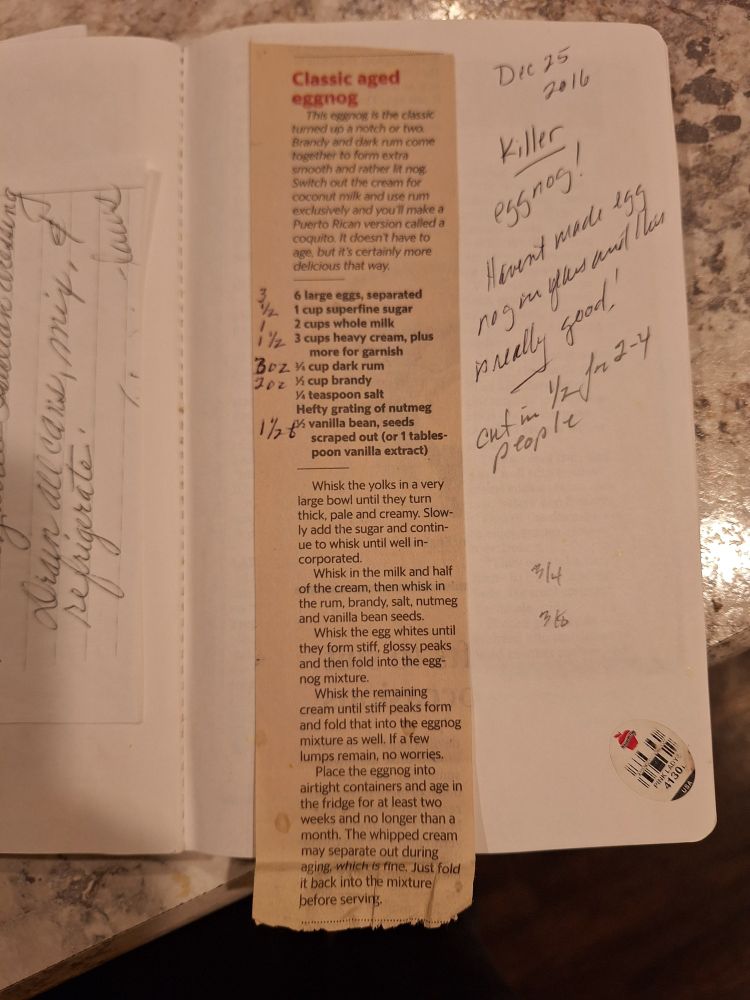 Italian dressing
Drain all cans, mix, &
refrigerate.
Classic aged
eggnog
This eggnog is the classic
turned up a notch or two.
Brandy and dark rum come
together to form extra
smooth and rather lit nog.
Switch out the cream for
coconut milk and use rum
exclusively and you'll make a
Puerto Rican version called a
coquito. It doesn't have to
age, but it's certainly more
delicious that way.
3 6 large eggs, separated
1/2 1 cup superfine sugar
1 2 cups whole milk
1 1/2 3 cups heavy cream, plus
more for garnish
3oz ¾ cup dark rum
2oz ½ cup brandy
¼ teaspoon salt
Hefty grating of nutmeg
1 1/2 t ½ vanilla bean, seeds
scraped out (or 1 tables-
poon vanilla extract)
Whisk the yolks in a very
large bowl until they turn
thick, pale and creamy. Slow-
ly add the sugar and contin-
ue to whisk until well in-
corporated.
Whisk in the milk and half
of the cream, then whisk in
the rum, brandy, salt, nutmeg
and vanilla bean seeds.
Whisk the egg whites until
they form stiff, glossy peaks
and then fold into the egg-
nog mixture.
Whisk the remaining
cream until stiff peaks form
and fold that into the eggnog
mixture as well. If a few
lumps remain, no worries.
Place the eggnog into
airtight containers and age in
the fridge for at least two
weeks and no longer than a
month. The whipped cream
may separate out during
aging, which is fine. Just fold
it back into the mixture
before serving.
Dec 25
2016
Killer
eggnog!
Haven't made egg
nog in years and this
is really good!
cut in 1/2 for 2-4
people
3/4
3/8
PINK LADY
4130
USA